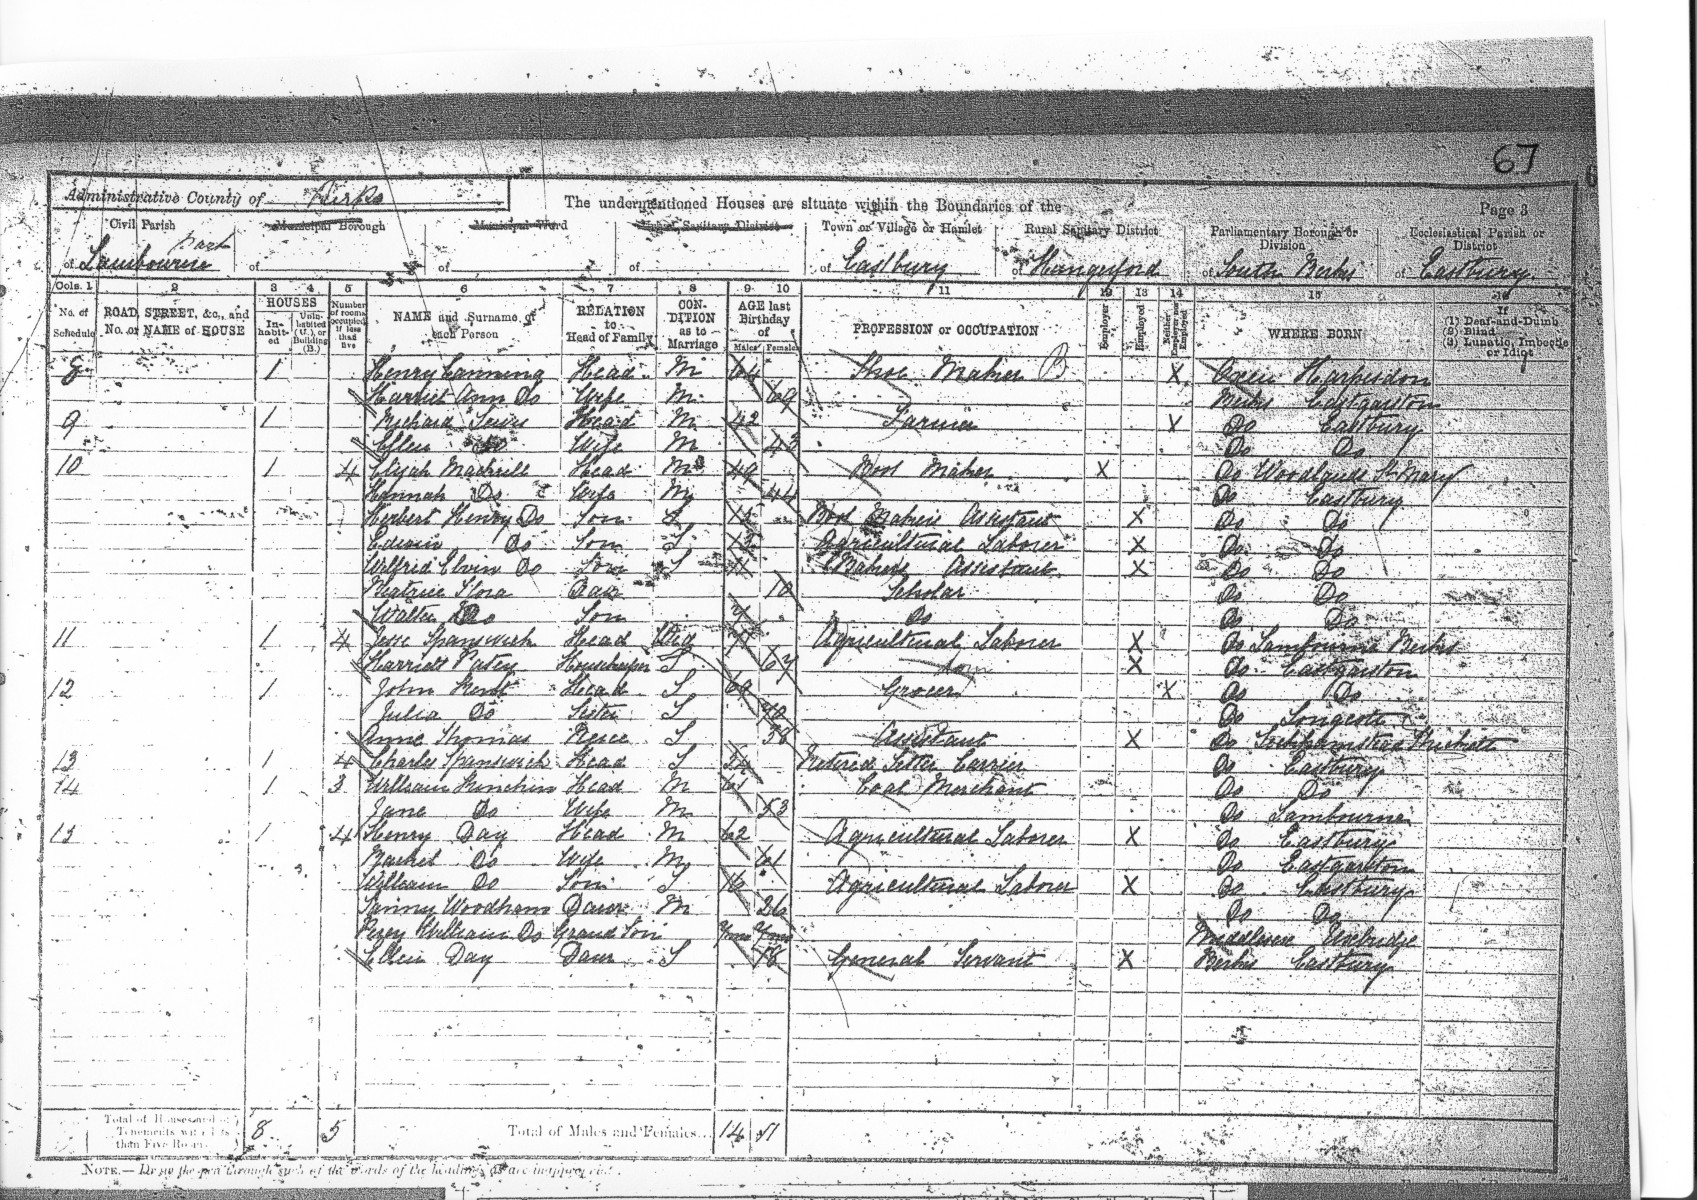 67
Administrative County of Berks
The undermentioned Houses are situate within the Boundaries of the
Page 3
Civil Parish
Municipal Borough
Municipal Ward
Urban Sanitary District
Town or Village or Hamlet
Rural Sanitary District
Parliamentary Borough or Division
Ecclesiastical Parish or District
of Lambourne Part
of
of
of
of Eastbury
of Hungerford
of South Berks
of Eastbury
Cols. 1 2 3 4 5 6 7 8 9 10 11 12 13 14 15 16
No. of Schedule
ROAD, STREET, &c., and No. or NAME of HOUSE
HOUSES
In-habit-ed
Unin-habited (U.), or Building (B.)
Number of rooms occupied if less than five
NAME and Surname of each Person
RELATION to Head of Family
CON-DITION as to Marriage
AGE last Birthday of
Males Females
PROFESSION or OCCUPATION
Employer
Employed
Neither Employer nor Employed
WHERE BORN
If (1) Deaf-and-Dumb (2) Blind (3) Lunatic, Imbecile or Idiot
8 1 Henry Canning Head M 64 Shoe Maker B X Oxon Harpsdon
Harriet Ann Do Wife M 69 Berks Eastgarston
9 1 Richard Head M 42 Farmer X Do Eastbury
Ellen Do Wife M 43 Do Do
10 1 4 Elijah Head M 49 Boot Maker X Do Woodlands St Mary
Hannah Do Wife M 44 Do Eastbury
Herbert Henry Do Son S 15 Boot Makers Assistant X Do Do
Edwin Do Son S 13 Agricultural Laborer X Do Do
Wilfred Elvin Do Son S 11 Bakers Assistant X Do Do
Beatrice Flora Daur 10 Scholar Do Do
Walter Do Son 7 Do Do Do
11 1 4 Jesse Spanswick Head Wid 71 Agricultural Laborer X Do Lambourne Berks
Harriett Patey Housekeeper S 67 X Do Eastgarston
12 1 John Kent Head S 69 Grocer X Do Do
Julia Do Sister S 70 Do
Anne Thomas Niece S 38 Assistant X Do
13 1 4 Charles Spanswick Head S 54 Retired Letter Carrier Do Eastbury
14 1 3 William Head M 61 Coal Merchant Do Do
Jane Do Wife M 53 Do Lambourne
15 1 4 Henry Day Head M 62 Agricultural Laborer X Do Eastbury
Rachel Do Wife M 61 Do Eastgarston
William Do Son S 16 Agricultural Laborer X Do Eastbury
Fanny Woodham Daur M 26 Do Do
Percy William Do Grand Son Middlesex Uxbridge
Ellen Day Daur S 18 General Servant X Berks Eastbury
Total of Houses and of Tenements with less than Five Rooms 8 5 Total of Males and Females... 14 11
NOTE.—Draw the pen through such of the words of the headings as are inappropriate.